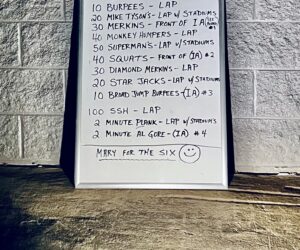 10 BURPEES - LAP
20 MIKE TYSON'S - LAP W/ STADIUMS
30 MERKINS - FRONT OF (IA)
40 MONKEY HUMPERS - LAP
50 SUPERMAN'S - LAP W/ STADIUMS
40 SQUATS - FRONT OF (IA) #2
30 DIAMOND MERKINS - LAP
20 STAR JACKS - LAP W/ STADIUMS
10 BROAD JUMP BURPEES - (IA) #3
100 SSH - LAP
2 MINUTE PLANK - LAP W/ STADIUMS
2 MINUTE AL GORE - (IA) #4
MARY FOR THE SIX